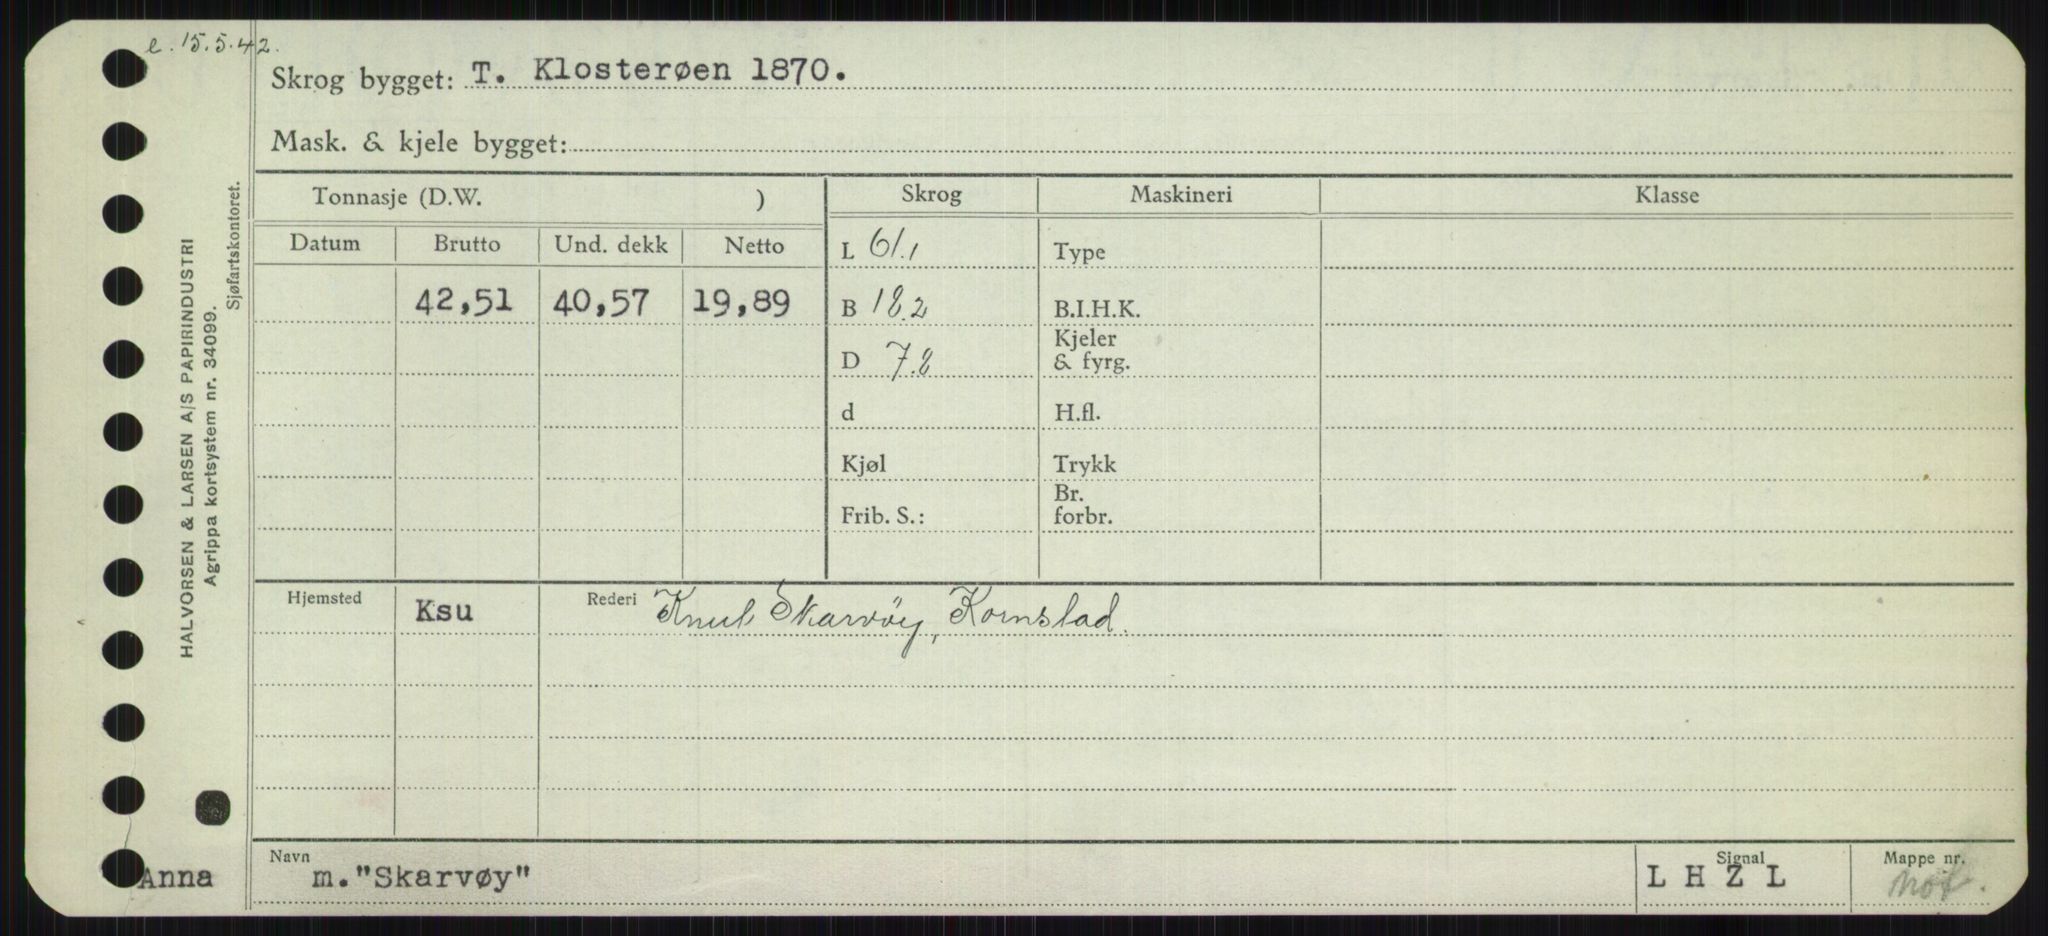 e. 15.5.42.
Skrog bygget: T. Klosterøen 1870.
Mask. & kjele bygget:
HALVORSEN & LARSEN A/S PAPIRINDUSTRI
Agrippa kortsystem nr. 34099.
Sjøfartskontoret.
Tonnasje (D.W. ) Skrog Maskineri Klasse
Datum Brutto Und. dekk Netto L 61,1 Type
42,51 40,57 19,89 B 18.2 B.I.H.K.
D 7.8 Kjeler & fyrg.
d H.fl.
Kjøl Trykk
Frib. S.: Br. forbr.
Hjemsted Ksu Rederi Knut Skarvöy, Kornstad.
Navn Signal Mappe nr.
Anna m."Skarvøy" L H Z L mot.